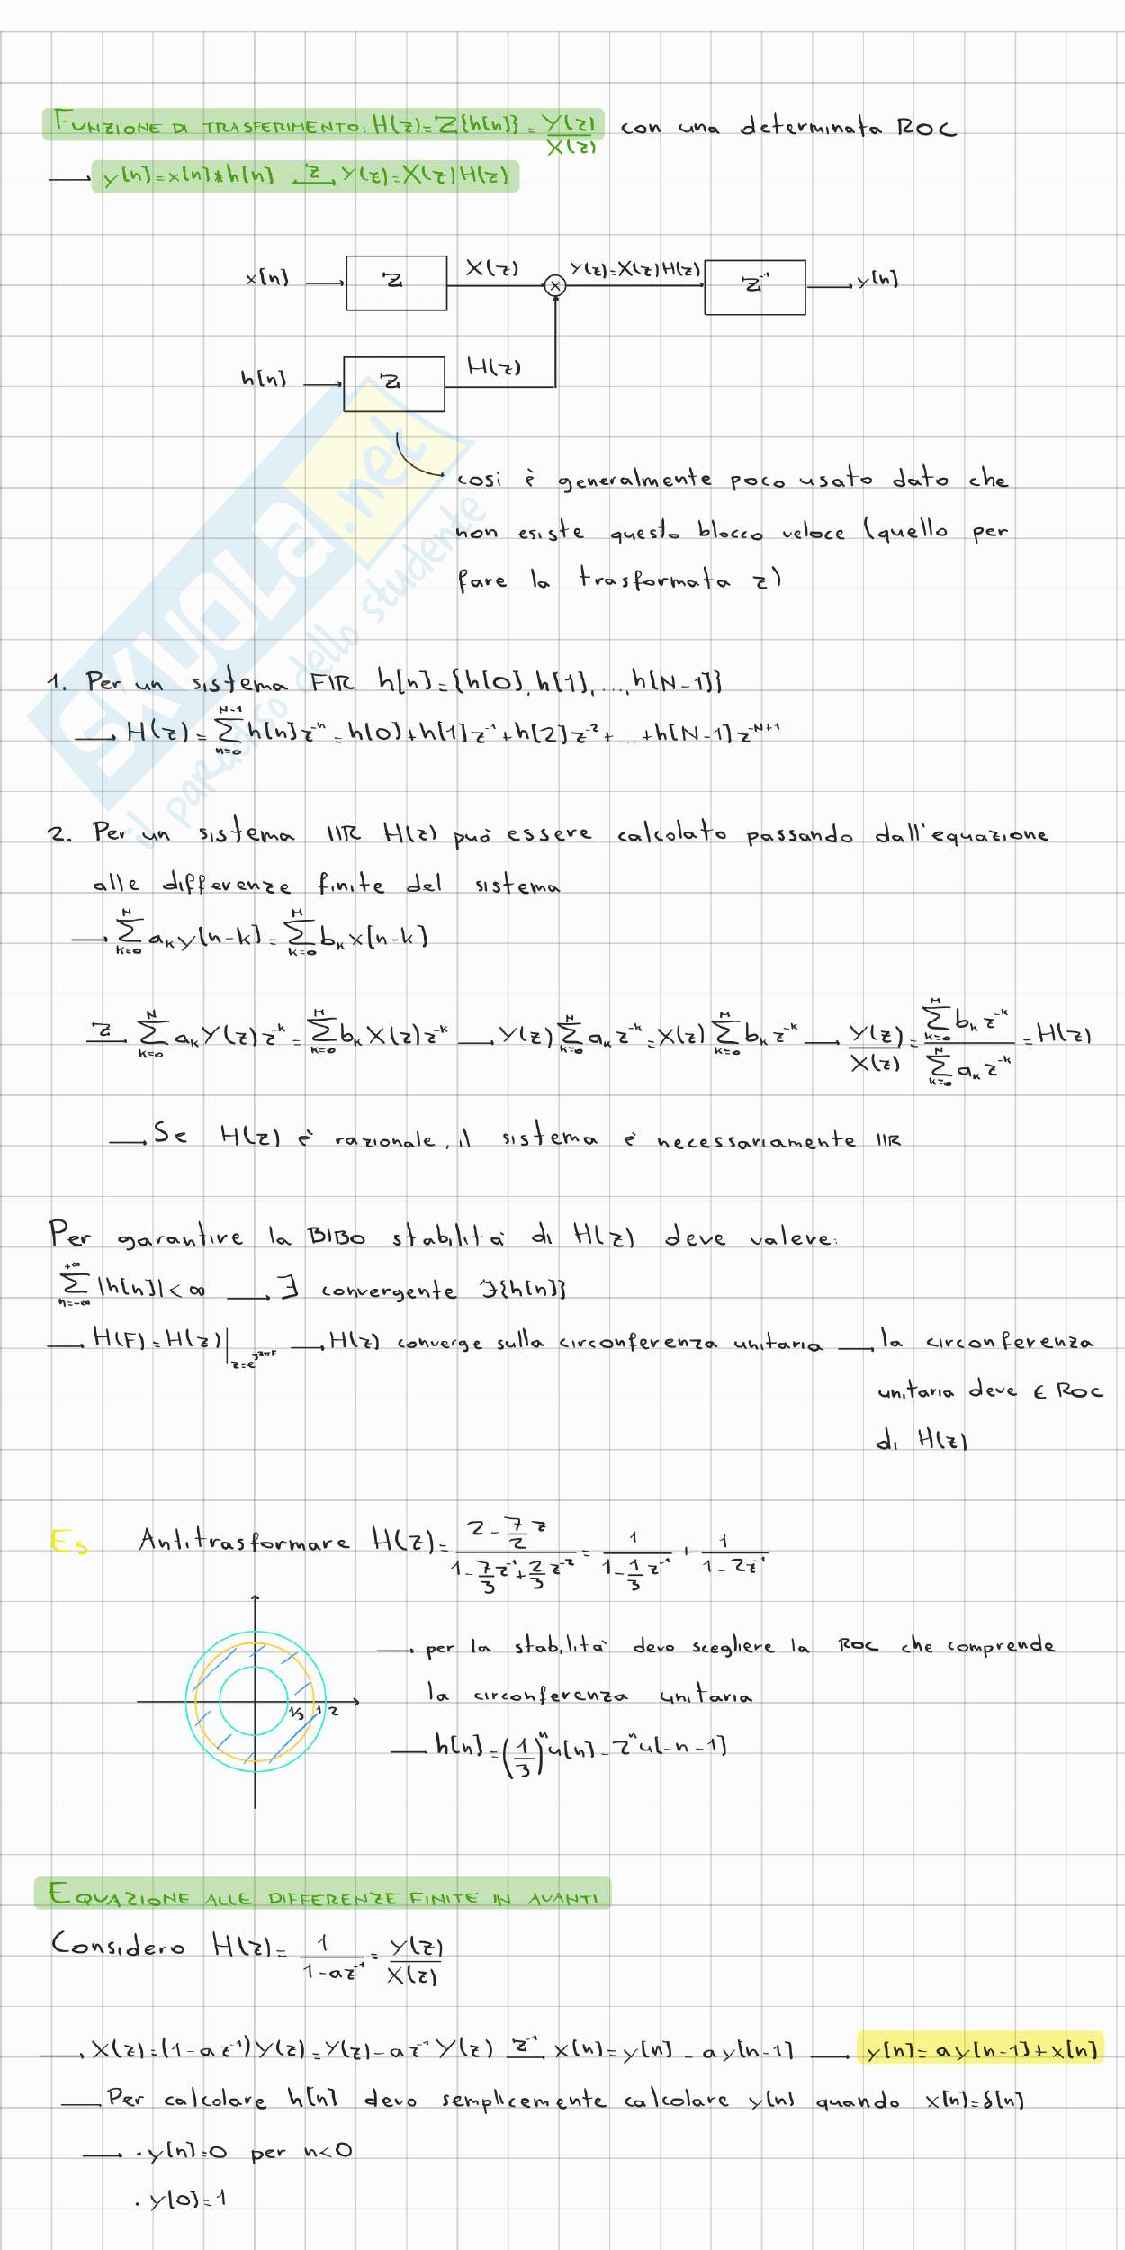 FUNZIONE DI TRASFERIMENTO: H(z)=Z{h[n]}=Y(z)/X(z) con una determinata ROC
→ y[n]=x[n]*h[n] Z→ Y(z)=X(z)H(z)
x[n] → Z X(z) ⊗ Y(z)=X(z)H(z) Z⁻¹ → y[n]
h[n] → Z H(z)
così è generalmente poco usato dato che
non esiste questo blocco veloce (quello per
fare la trasformata z)
SKUOLA.net
il paradiso dello studente
1. Per un sistema FIR h[n]={h[0],h[1],...,h[N-1]}
→ H(z)=∑_{n=0}^{N-1} h[n]z⁻ⁿ=h[0]+h[1]z⁻¹+h[2]z⁻²+ +h[N-1]z^{-N+1}
2. Per un sistema IIR H(z) può essere calcolato passando dall'equazione
alle differenze finite del sistema
→ ∑_{k=0}^{N} a_k y[n-k]=∑_{k=0}^{M} b_k x[n-k]
Z→ ∑_{k=0}^{N} a_k Y(z)z^{-k}=∑_{k=0}^{M} b_k X(z)z^{-k} → Y(z)∑_{k=0}^{N} a_k z^{-k}=X(z)∑_{k=0}^{M} b_k z^{-k} → Y(z)/X(z)=∑_{k=0}^{M} b_k z^{-k}/∑_{k=0}^{N} a_k z^{-k}=H(z)
→ Se H(z) è razionale, il sistema è necessariamente IIR
Per garantire la BIBO stabilità di H(z) deve valere:
∑_{n=-∞}^{+∞} |h[n]|<∞ → ∃ convergente F{h[n]}
→ H(F)=H(z)|_{z=e^{j2πF}} → H(z) converge sulla circonferenza unitaria → la circonferenza
unitaria deve ∈ ROC
di H(z)
Es Antitrasformare H(z)=(2-7/2 z)/(1-7/3 z⁻¹+2/3 z⁻²)=1/(1-1/3 z⁻¹)+1/(1-2z⁻¹)
→ per la stabilità devo scegliere la ROC che comprende
la circonferenza unitaria
1/3 1 2
→ h[n]=(1/3)ⁿu[n]-2ⁿu[-n-1]
EQUAZIONE ALLE DIFFERENZE FINITE IN AVANTI
Considero H(z)=1/(1-az⁻¹)=Y(z)/X(z)
→ X(z)=(1-az⁻¹)Y(z)=Y(z)-az⁻¹Y(z) Z⁻¹→ x[n]=y[n]-ay[n-1] → y[n]=ay[n-1]+x[n]
→ Per calcolare h[n] devo semplicemente calcolare y[n] quando x[n]=δ[n]
→ · y[n]=0 per n<0
· y[0]=1